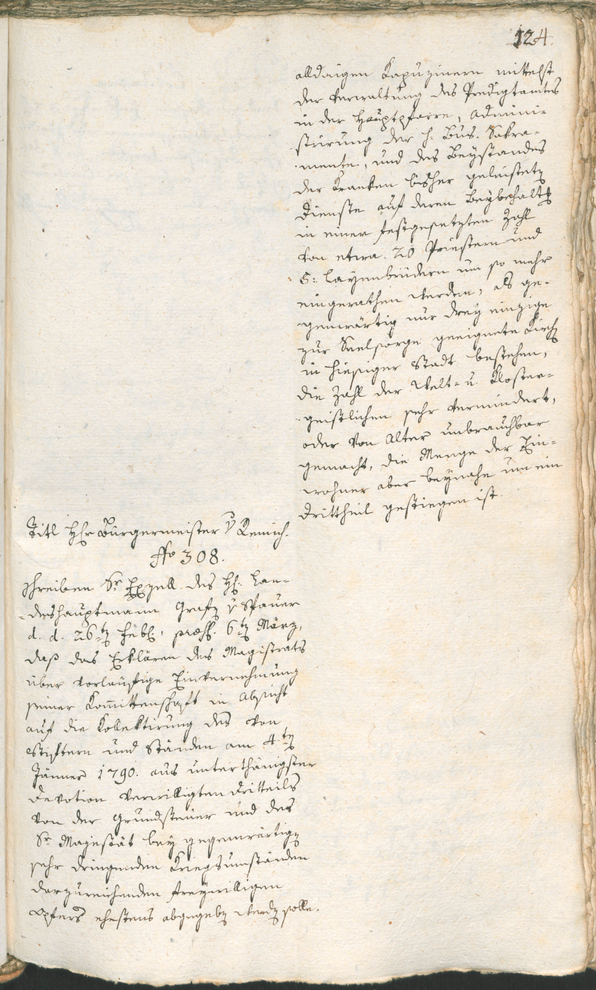 124.
alldaigen Kapuzinern mittelst
der Verwaltung des Predigtamtes
in der Hauptpfarre, Admini-
strirung der h. Bus. Sakra-
mente, und des Beystandes
der Kranken bisher geleisteten
Dienste auf deren Beybehaltung
in einer festgesetzten Zahl
von etwa. 20 Priestern und
6: Layenbrüdern um so mehr
eingerathen werden, als ge-
genwärtig nur drey einzige
zur Seelsorge geeignete Kirchen
in hiesiger Stadt bestehen,
die Zahl der Welt- u. Kloster-
geistlichen sehr vermindert,
oder von Alter unbrauchbar
gemacht, die Menge der Ein-
wohner aber beynahe um ein
Drittheil gestiegen ist.
Titl Hr Bürgermeister v Remich.
No 308.
Schreiben Sr Exzell. des H. Lan-
deshauptmann Grafen v Spaur
d. d. 26ten Febr, praes. 6ten März,
daß das Erklären des Magistrats
über vorläufige Einvernehmung
seiner Komittenschaft in Absicht
auf die Kolektirung des von
Stiftern und Ständen am 4ten
Jänner 1790. aus unterthänigster
Devotion verwilligten Drittels
von der Grundsteuer und des
Sr Majestät bey gegenwärtigen
sehr dringenden Kriegsumständen
darzureichenden freywilligen
Opfers ehestens abgegeben werden solle.